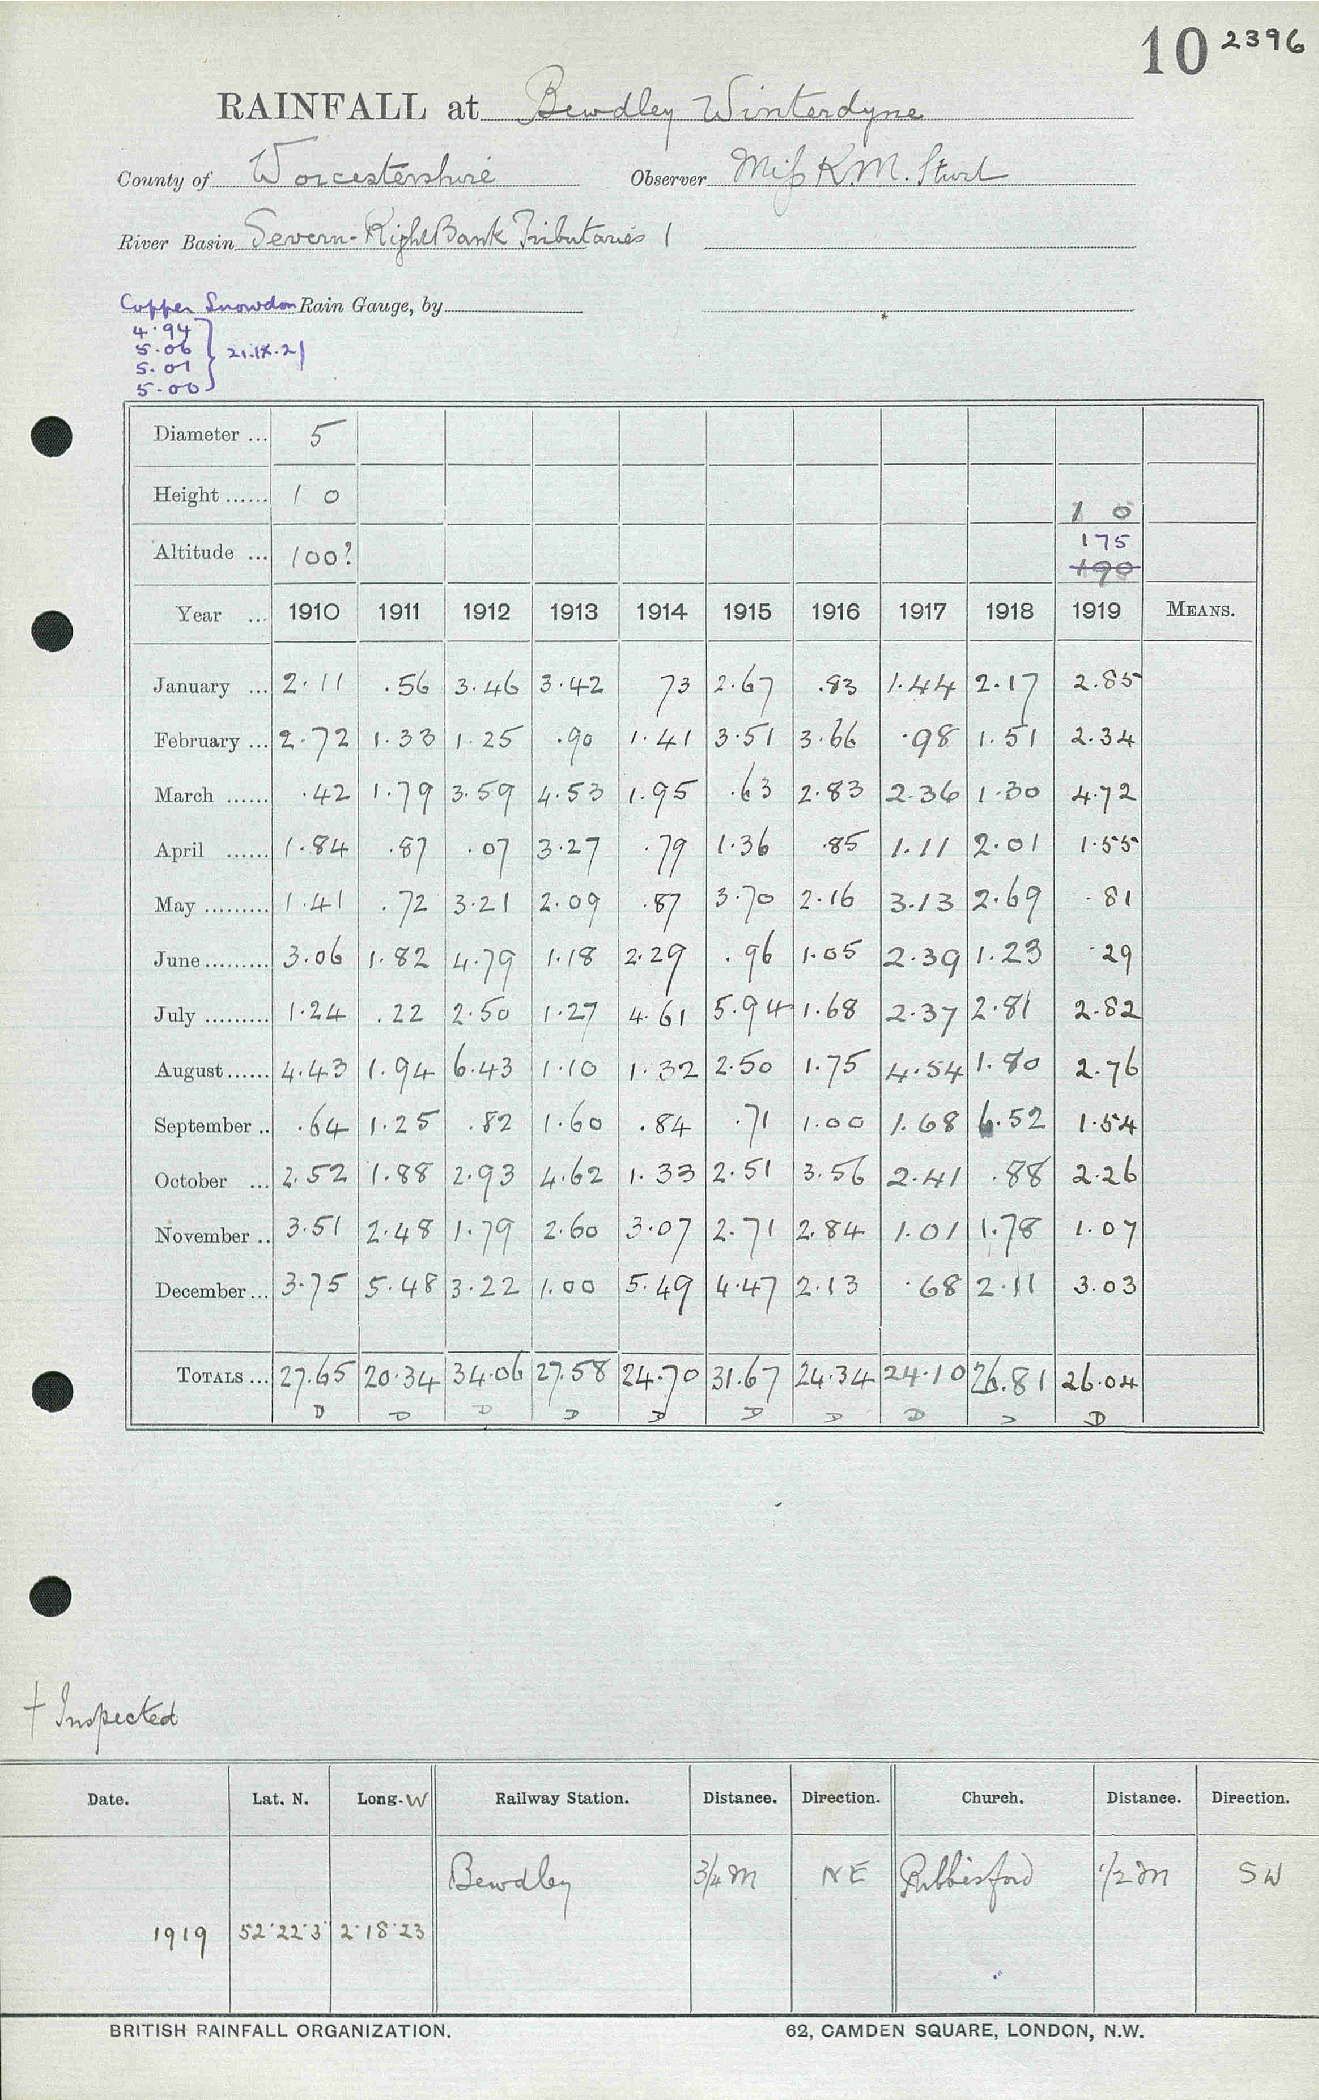 10 2396
RAINFALL at Bewdley Winterdyne
County of Worcestershire Observer Miss K.M. Sturt
River Basin Severn-Right Bank Tributaries 1
Copper Snowdon Rain Gauge, by
4.94
5.06 21.IX.21
5.01
5.00
Diameter ... 5
Height ...... 1 0 1 0
Altitude ... 100? 175
190
Year ... 1910 1911 1912 1913 1914 1915 1916 1917 1918 1919 MEANS.
January ... 2.11 .56 3.46 3.42 73 2.67 .83 1.44 2.17 2.85
February ... 2.72 1.33 1.25 .90 1.41 3.51 3.66 .98 1.51 2.34
March ...... .42 1.79 3.59 4.53 1.95 .63 2.83 2.36 1.30 4.72
April ...... 1.84 .87 .07 3.27 .79 1.36 .85 1.11 2.01 1.55
May ......... 1.41 .72 3.21 2.09 .87 3.70 2.16 3.13 2.69 .81
June ......... 3.06 1.82 4.79 1.18 2.29 .96 1.05 2.39 1.23 .29
July ......... 1.24 .22 2.50 1.27 4.61 5.94 1.68 2.37 2.81 2.82
August ...... 4.43 1.94 6.43 1.10 1.32 2.50 1.75 4.54 1.80 2.76
September .. .64 1.25 .82 1.60 .84 .71 1.00 1.68 6.52 1.54
October ... 2.52 1.88 2.93 4.62 1.33 2.51 3.56 2.41 .88 2.26
November .. 3.51 2.48 1.79 2.60 3.07 2.71 2.84 1.01 1.78 1.07
December ... 3.75 5.48 3.22 1.00 5.49 4.47 2.13 .68 2.11 3.03
TOTALS ... 27.65 20.34 34.06 27.58 24.70 31.67 24.34 24.10 26.81 26.04
D D D D D D D D D D
+ Inspected
Date. Lat. N. Long. W Railway Station. Distance. Direction. Church. Distance. Direction.
Bewdley 3/4 m NE Ribbesford 1/2 m SW
1919 52°22'3 2°18'23
BRITISH RAINFALL ORGANIZATION. 62, CAMDEN SQUARE, LONDON, N.W.